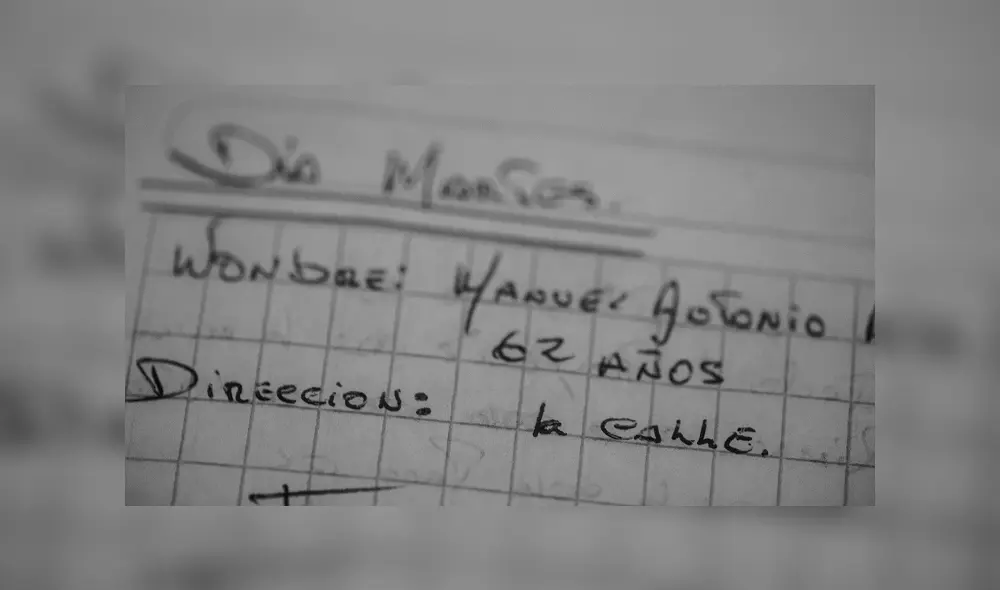 Dia Martes.
Nonbre: Manuel Antonio
62 AÑOS
Direccion: la calle.